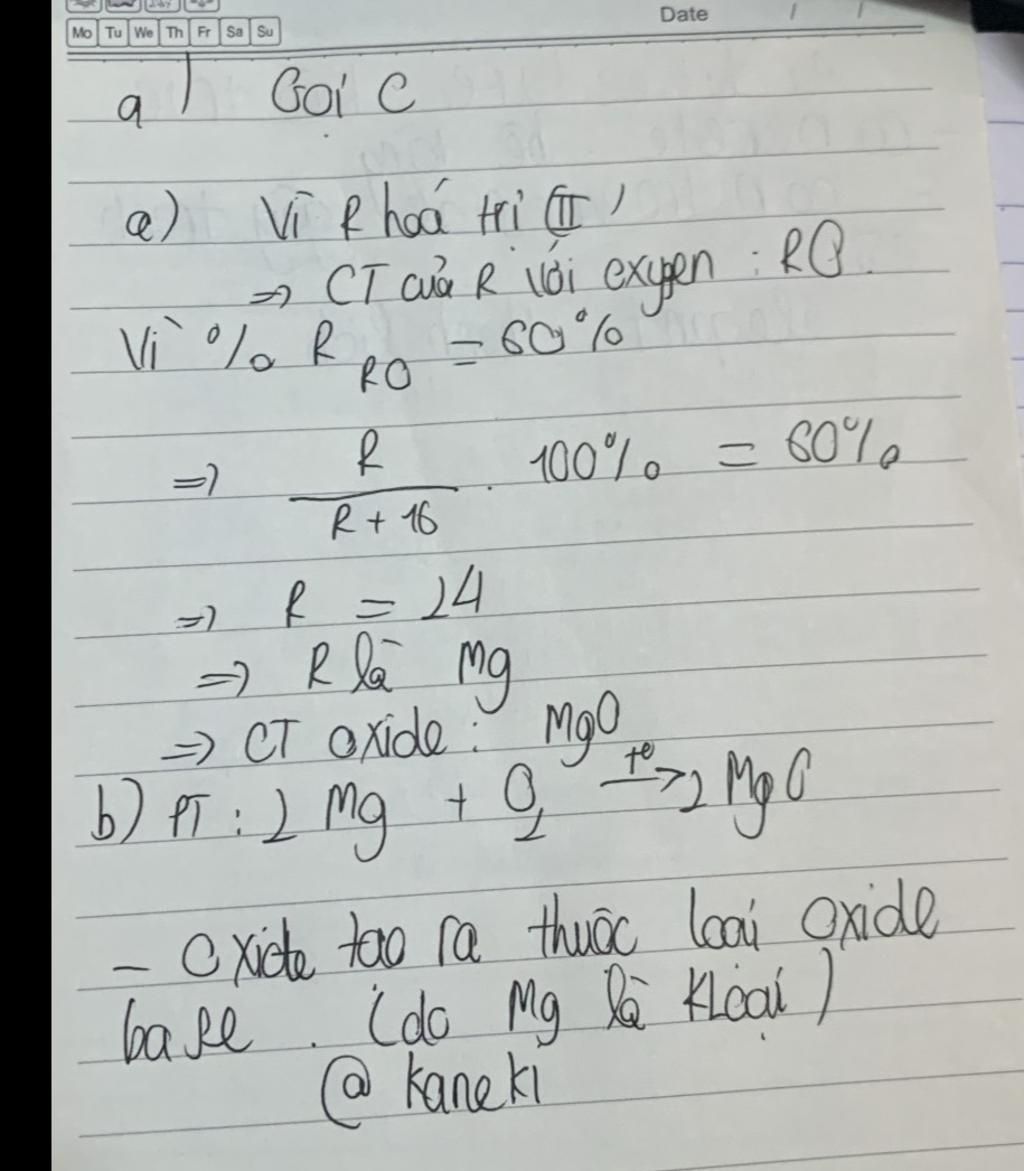 Date / /
Mo Tu We Th Fr Sa Su
a) Gọi C
a) Vì R hoá trị (II)
=> CT của R với oxygen : RO.
Vì % R RO = 60%
=> R / R + 16 . 100% = 60%
=> R = 24
=> R là Mg
=> CT oxide : MgO
b) PT : 2 Mg + O2 t° → 2 MgO
- Oxide tạo ra thuộc loại oxide
base . (do Mg là KLoại)
@ kaneki